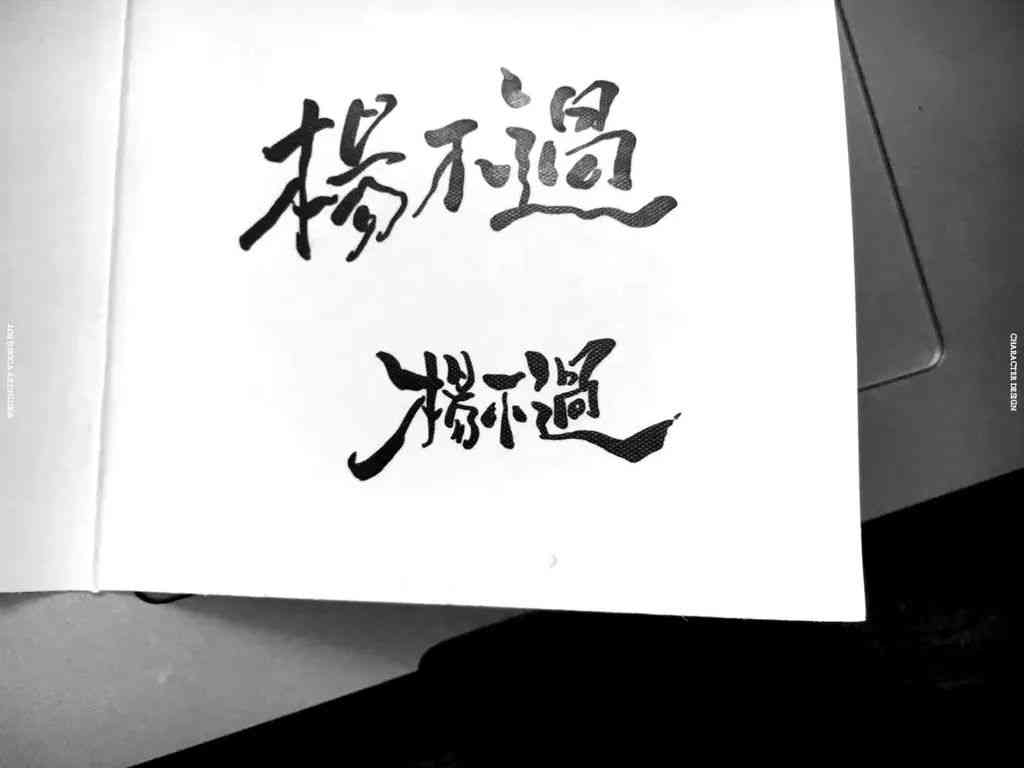 楊不過
楊不過
CHARACTER DESIGN